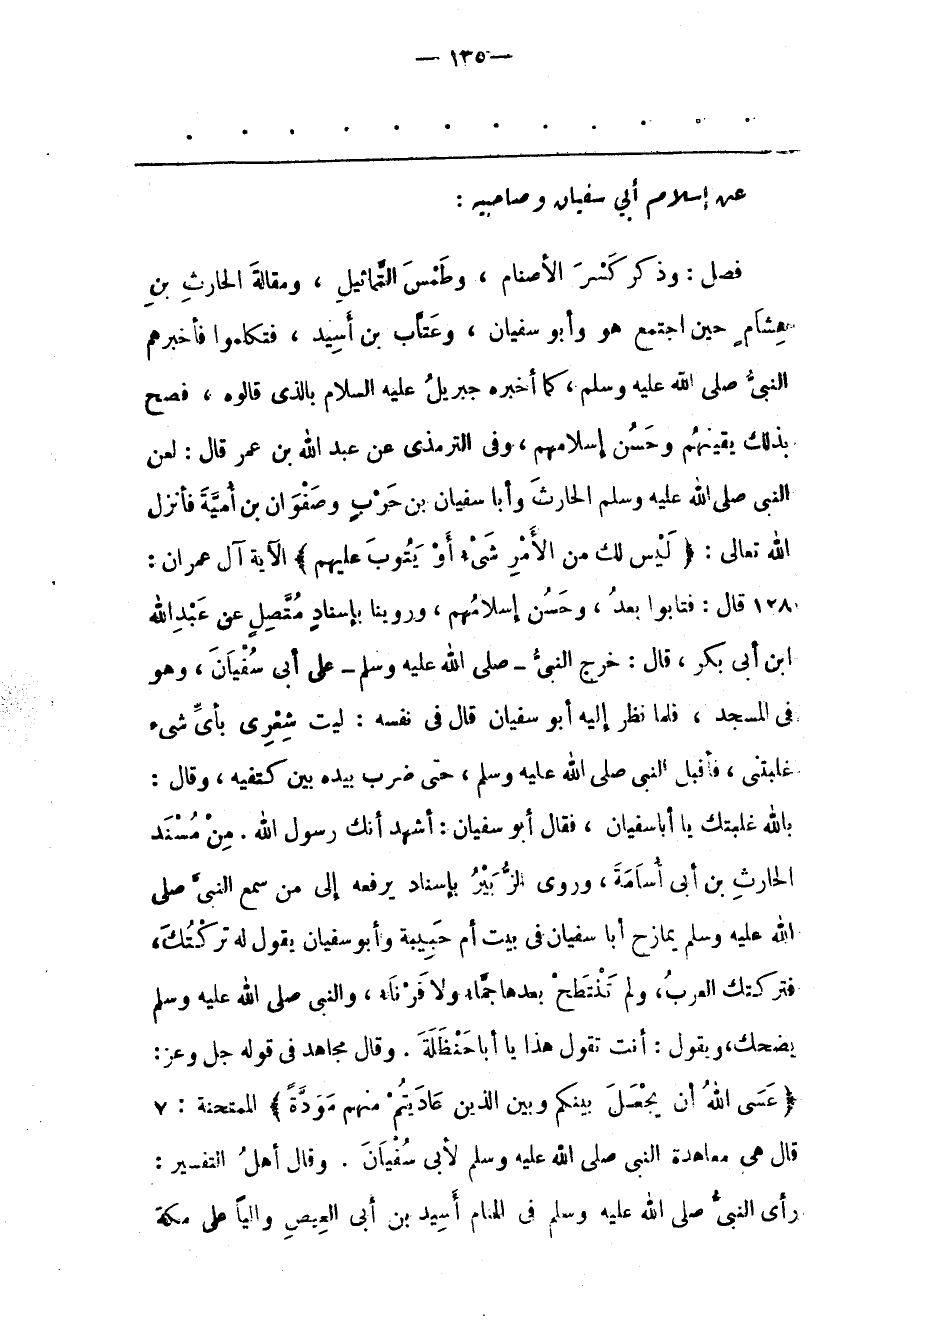 — ١٣٥ —
عن إسلام أبي سفيان وصاحبيه :
فصل : وذكر كَسْرَ الأصنام ، وطَمْسَ التَّماثيلِ ، ومقالةَ الحارثِ بنِ
هِشَامٍ حين اجتمع هو وأبو سفيان ، وعَتَّاب بن أَسِيد ، فتكلموا فأخبرهم
النبيُّ صلى الله عليه وسلم ، كما أخبره جبريلُ عليه السلام بالذى قالوه ، فصح
بذلك يقينهُم وحَسُن إسلامهم ، وفى الترمذى عن عبد الله بن عمر قال : لعن
النبى صلى الله عليه وسلم الحارثَ وأبا سفيان بن حَرْبٍ وصَفْوَان بن أُمَيَّةَ فأنزل
الله تعالى : ﴿ لَيْس لك من الأَمْرِ شَىْء أَوْ يَتُوبَ عليهم ﴾ الآية آل عمران :
١٢٨ قال : فتابوا بعدُ ، وحَسُن إسلامُهم ، وروينا بإسنادٍ مُتَّصِلٍ عن عَبْدِ الله
ابن أبى بكر ، قال : خرج النبىُّ ــ صلى الله عليه وسلم ــ على أبى سُفْيَانَ ، وهو
فى المسجد ، فلما نظر إليه أبو سفيان قال فى نفسه : ليت شِعْرِى بأىِّ شىء
غلبتنى ، فأقبل النبى صلى الله عليه وسلم ، حتى ضرب بيده بين كتفيه ، وقال :
بالله غلبتك يا أبا سفيان ، فقال أبو سفيان : أشهد أنك رسول الله . مِنْ مُسْنَد
الحارثِ بن أبى أُسَامَةَ ، وروى الزُّبَيْرُ بإسناد يرفعه إلى من سمع النبىَّ صلى
الله عليه وسلم يمازح أبا سفيان فى بيت أم حَبِيبة وأبو سفيان يقول له تركْتُكَ ،
فتركتك العربُ ، ولم تَنْتَطِحْ بعدها جمَّاء ولا قَرْنَاء ، والنبى صلى الله عليه وسلم
يضحك ، ويقول : أنت تقول هذا يا أبا حَنْظَلَةَ . وقال مجاهد فى قوله جل وعز :
﴿ عَسَى اللهُ أن يجْعَلَ بينكم وبين الذين عَادَيتُمْ منهم مَوَدَّةً ﴾ الممتحنة : ٧
قال هى معاهدة النبى صلى الله عليه وسلم لأبى سُفْيَانَ . وقال أهلُ التفسير :
رأى النبىُّ صلى الله عليه وسلم فى المنام أَسِيد بن أبى العِيصِ والياً على مكة